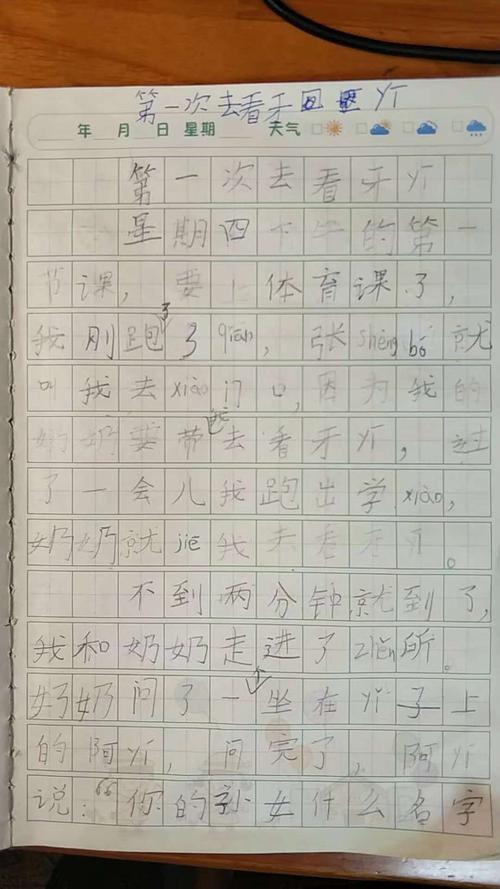 第一次去看牙yī
年 月 日 星期 天气
第一次去看牙yī
星期四下午的第一
节课,要上体育课了,
我刚跑了qiān,张shèng bó就
叫我去xiào门口,因为我的
奶奶要带我去看牙yī,过
了一会儿我跑出学xiào,
奶奶就jiē我去看牙。
不到两分钟,就到了,
我和奶奶走进了zhěn所。
奶奶问了一个坐在yǐ子上
的阿yí,问完了,阿yí
说:“你的孙女什么名字